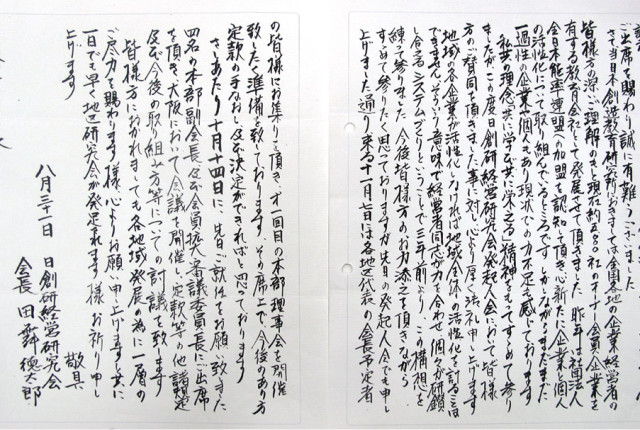 ご出席を賜わり誠に有難うございました
さて当日本創造教育研究所におきましては全国各地の企業経営者の
皆様方の深いご理解のもと現在約480社のオーナー会員企業を
有する教育会社として発展させて頂きました 昨年は社団法人
全日本能率連盟への加盟を認知して頂き心新たに企業と個人
の活性化について取り組んでいるところです しかしながらまだまだ
一過性の企業が個人もあり現状での力不足を感じております
私共の理念 共に学び共に栄える精神をもってすすめて参り
ましたがこの度日創研経営研究会発起人会において皆様
方のご賛同を頂きました事に対し心より厚く御礼申し上げます
地域の各企業が活性化しなければ地域全体の活性化を計ることは
できません そういう意味で経営者同志力を合わせ個々が研鑽
し合えるシステムづくりということで三年前より、この構想を
練って参りました 今後皆様方のお力添えを頂きながら
すすめて参りたく思っておりますが先日の発起人会でも申し
上げました通り来る十一月十七日は各地区代表の会長予定者
の皆様にお集り頂き、才一回目の本部理事会を開催
致したく準備を致しております。その席上で、今後のあり方
定款の手なおし及び決定ができればと思っております
さしあたり十月十四日に、先日ご就任をお願い致しました
四名の本部副会長及び会員拡大審議委員長にご出席
を頂き、大阪において会議を開催し、定款等その他諸規定
及び今後の取り組み方等についての討議を致します
皆様方におかれましても各地域発展の為に一層の
ご尽力を賜わります様心よりお願い申し上げますと共に
一日でも早く地区研究会が発足されます様お祈り申し
上げます
敬具
八月三十一日 日創研経営研究会
会長 田舞徳太郎